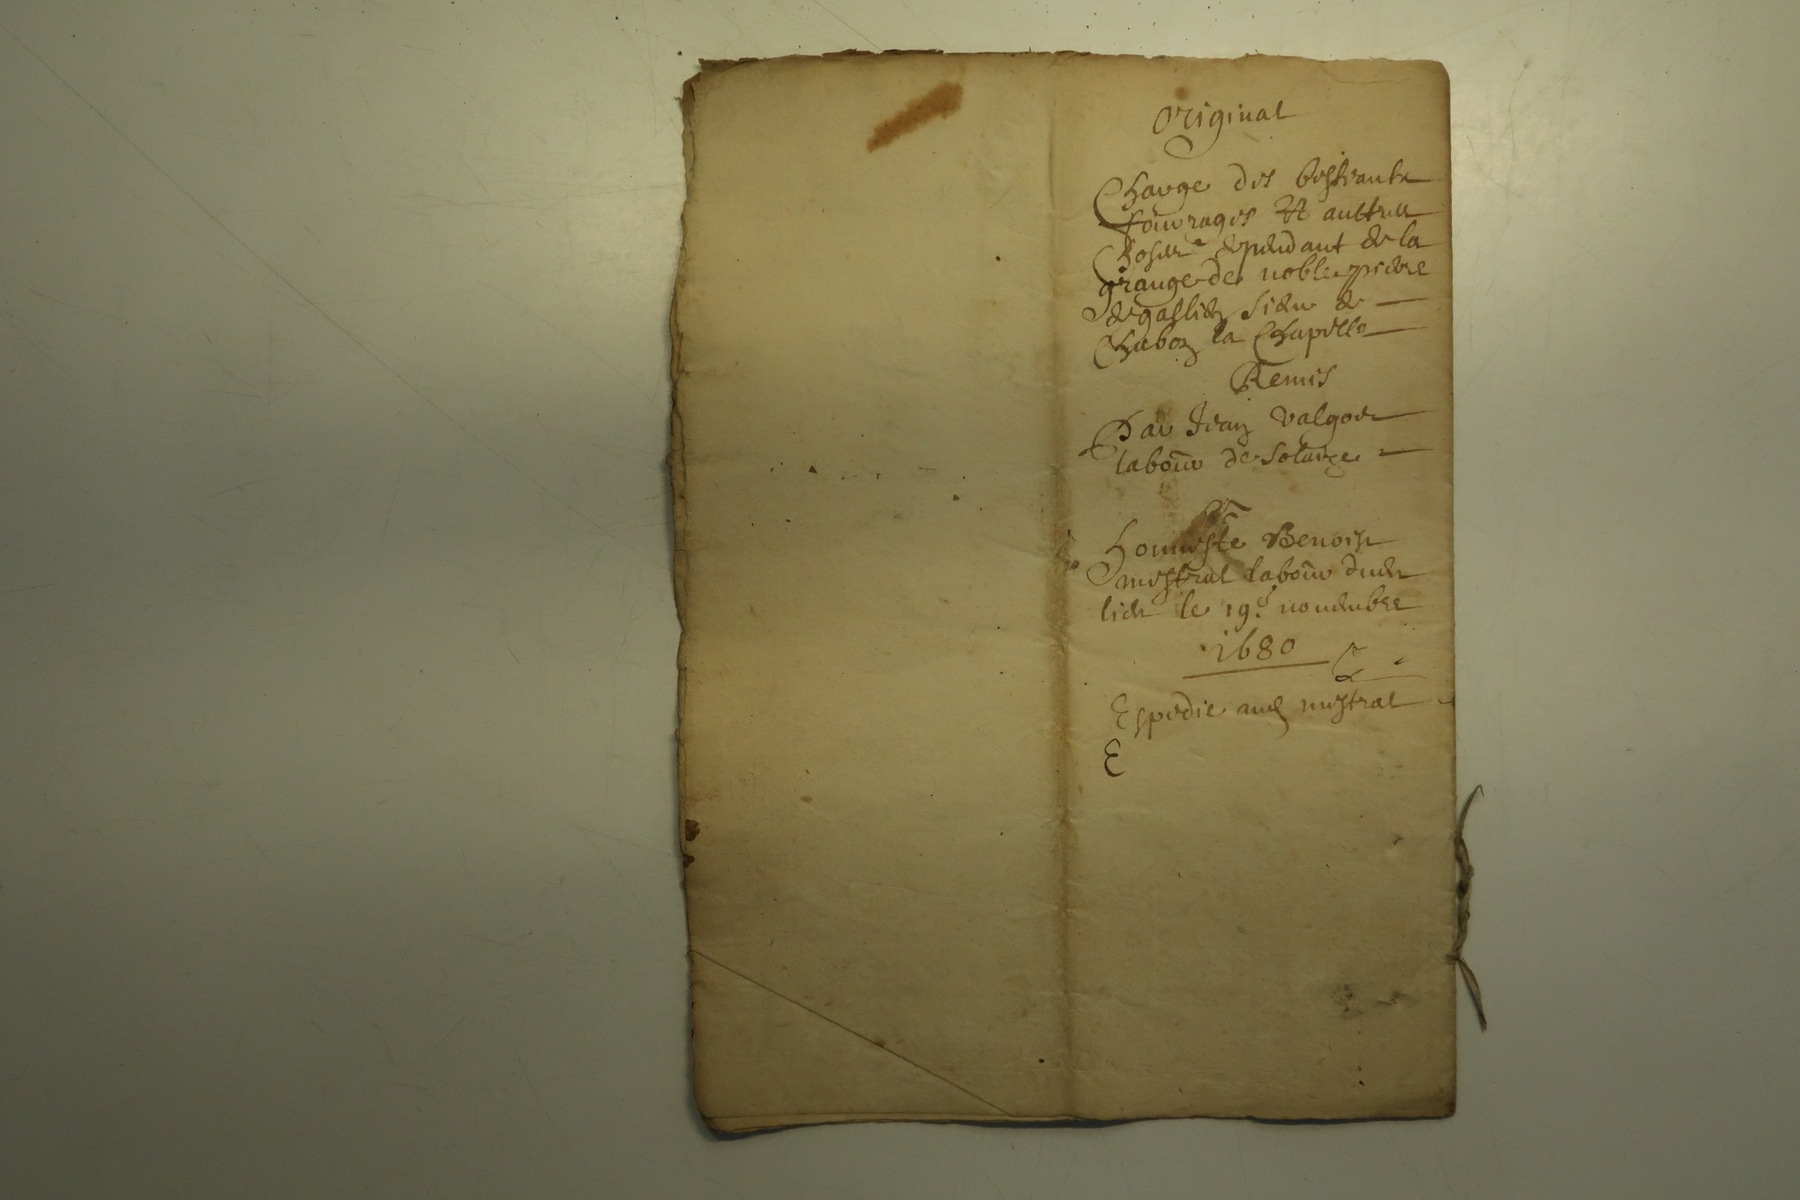 Original
Charge des bestiaulx
fourrages Et aultres
Choses dependant de la
grange de noble pierre
de gaslier sieur de
Chabon la Chapelle
Remis
Par Jean Valgoet
labour de Solaize
A
Honneste Benoist
mistral labour dudit
lieu le 19e novembre
1680
Espedie aud mistral
E